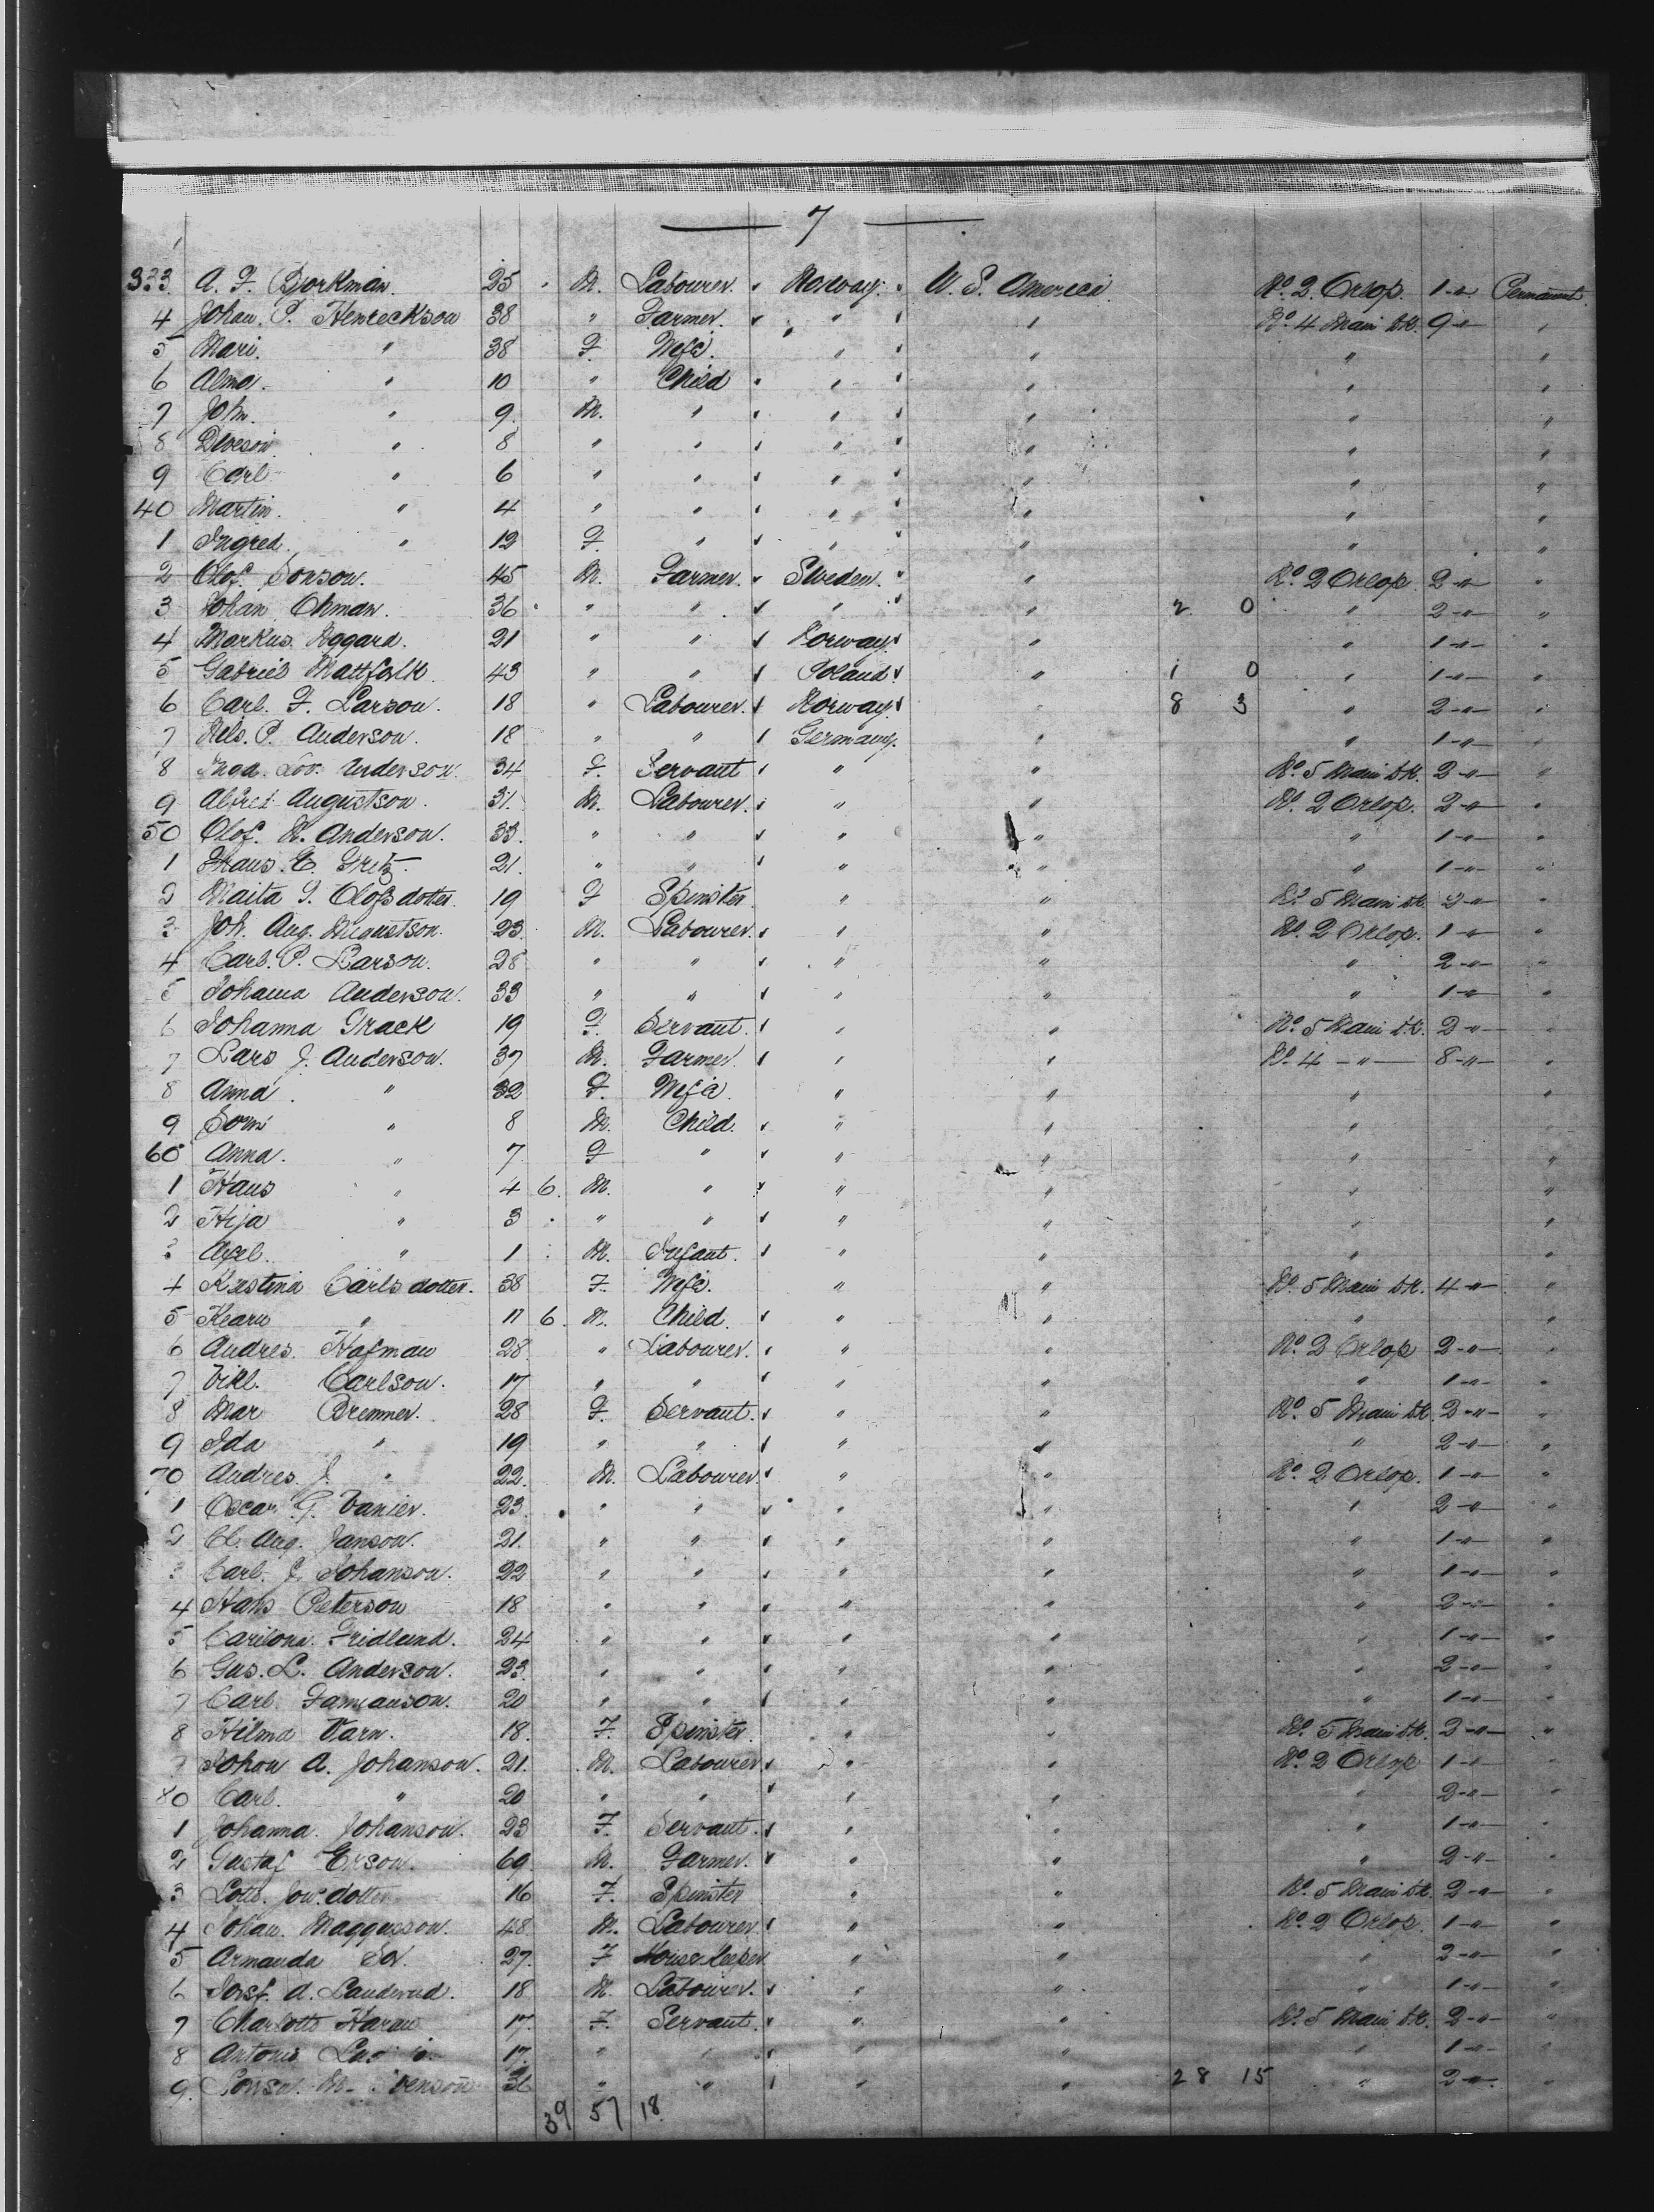 7
333. A. F. Borkman. 25 M. Labourer. Norway. U. S. America No. 2. Orlop. 1 -"- Permanent.
4 Johan. P. Henreckson 38 " Farmer. " " No. 4 Main dk. 9 -"- "
5 Mari. " 38 F. Wife. " " " "
6 Alma. " 10 " Child " " " "
7 John. " 9. M. " " " " "
8 " 8 " " " " " "
9 Carl " 6 " " " " " "
40 Martin. " 4 " " " " " "
1 Ingred. " 12 F. " " " " "
2 Olof. Sonson. 45 M. Farmer. Sweden. " No. 2 Orlop. 2 -"- "
3 Johan Ohman. 36 " " " " 2 0 " 2 -"- "
4 Markus. Aggard. 21 " " Norway. " " 1 -"- "
5 Gabriel Mattfolk 43 " " Poland " 1 0 " 1 -"- "
6 Carl. F. Larson. 18 " Labourer. Norway. " 8 3 " 2 -"- "
7 Nels. P. Anderson. 18 " " Germany. " " 1 -"- "
8 Inga. Lov. Anderson. 34 F. Servant " " No. 5 Main dk. 2 -"- "
9 Alfred Augustson. 31. M. Labourer. " " No. 2 Orlop. 2 -"- "
50 Olof. N. Anderson. 33. " " " " " 1 -"- "
1 Hans. E. 21. " " " " " 1 -"- "
2 Maita S. Olofsdotter. 19 F Spinster " " No. 5 Main dk. 2 -"- "
3 Joh. Aug. Augustson. 23. M. Labourer. " " No. 2 Orlop. 1 -"- "
4 Carl. P. Larson. 28 " " " " " 2 -"- "
5 Johanna Anderson. 33 " " " " " 1 -"- "
6 Johanna Track 19 F. Servant. " " No. 5 Main dk. 2 -"- "
7 Lars J. Anderson. 37 M. Farmer. " " No. 4 -"- 8 -"- "
8 Anna. " 32 F. Wife. " " " "
9 " 8 M. Child. " " "
60 Anna. " 7. F " " " " "
1 Hans " 4 6. M. " " " " "
2 Hija " 3 " " " " " "
3 Axel. " 1 M. Infant. " " " "
4 Kristina Carlsdotter. 38 F. Wife. " " No. 5 Main dk. 4 -"- "
5 " 11 6. M. Child. " " " "
6 Andres. Hofman 28. " Labourer. " " No. 2 Orlop 2 -"- "
7 Carlson. 17 " " " " " 1 -"- "
8 Mar Bremner. 28 F. Servant. " " No. 5 Main dk. 2 -"- "
9 Ida " 19 " " " " " 2 -"- "
70 Andres. J. " 22. M. Labourer " " No. 2 Orlop. 1 -"- "
1 Oscar. G. Vanier. 23. " " " " " 2 -"- "
2 Cl. Aug. Janson. 21. " " " " " 1 -"- "
3 Carl. J. Johanson. 22 " " " " " 1 -"- "
4 Hans Peterson 18 " " " " " 2 -"- "
5 Fridlund. 24 " " " " " 1 -"- "
6 Gus. L. Anderson. 23. " " " " " 2 -"- "
7 Carl 20 " " " " " 1 -"- "
8 Hilma Varn. 18. F. Spinster. " " No. 5 Main dk. 2 -"- "
9 Johan A. Johanson. 21. M. Labourer " " No. 2 Orlop 1 -"- "
80 Carl. " 20 " " " " " 2 -"- "
1 Johanna. Johanson. 23 F. Servant. " " " 1 -"- "
2 Gustaf Erson. 69. M. Farmer. " " " 2 -"- "
3 Lotta. 16 F. Spinster " " No. 5 Main dk. 2 -"- "
4 Johan. Maggusson. 48. M. Labourer. " " No. 2 Orlop. 1 -"- "
5 Armanda 27. F House Keeper " " " 2 -"- "
6 A. Landerud. 18 M. Labourer. " " " 1 -"- "
7 Charlotte 17. F. Servant. " " No. 5 Main dk. 2 -"- "
8 17. " " " " " 1 -"- "
9. 36 " " " " 28 15 " 2 -"- "
39 57 18.